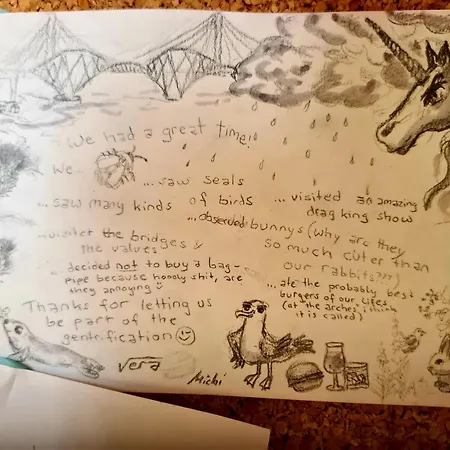 We had a great time!
We
... saw seals
... saw many kinds of birds
... visited an amazing
drag king show
... observed bunnys (why are they
so much cuter than
our rabbits???)
the bridges &
the values
... decided not to buy a bag-
pipe because hooly shit, are
they annoying
... ate the probably best
burgers of our lifes
(at the arches, i think
it is called)
Thanks for letting us
be part of the
gentrification
Vera
Michi